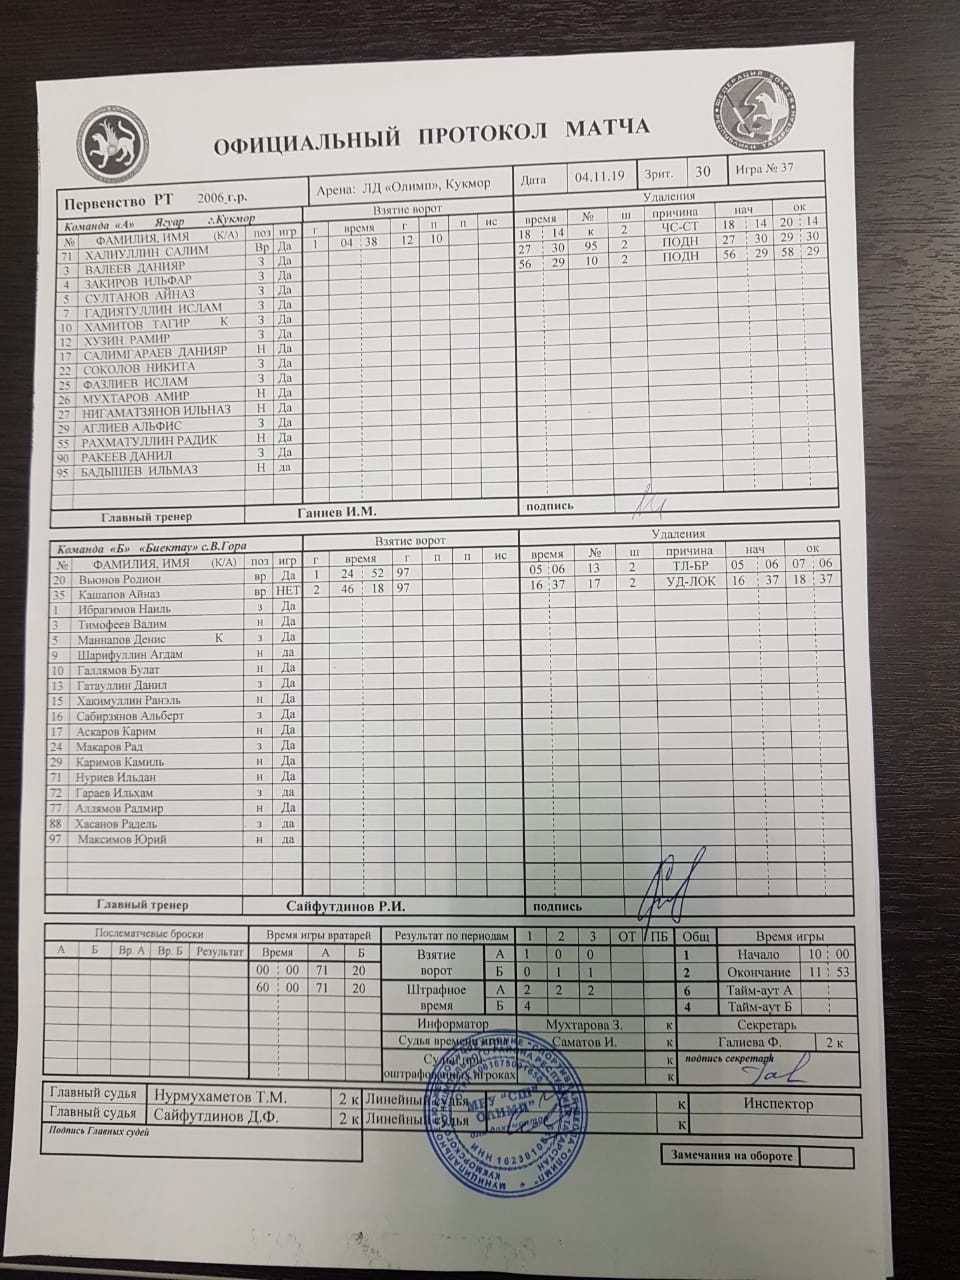 ОФИЦИАЛЬНЫЙ ПРОТОКОЛ МАТЧА
Первенство РТ 2006 г.р. Арена: ЛД «Олимп», Кукмор Дата 04.11.19 Зрит. 30 Игра № 37
Команда «А» Ягуар г.Кукмор Взятие ворот Удаления
№ ФАМИЛИЯ, ИМЯ (К/А) поз игр г время г п п ис время № ш причина нач ок
71 ХАЛИУЛЛИН САЛИМ Вр Да 1 04 38 12 10 18 14 к 2 ЧС-СТ 18 14 20 14
3 ВАЛЕЕВ ДАНИЯР З Да 27 30 95 2 ПОДН 27 30 29 30
4 ЗАКИРОВ ИЛЬФАР З Да 56 29 10 2 ПОДН 56 29 58 29
5 СУЛТАНОВ АЙНАЗ З Да
7 ГАДИЯТУЛЛИН ИСЛАМ З Да
10 ХАМИТОВ ТАГИР К З Да
12 ХУЗИН РАМИР З Да
17 САЛИМГАРАЕВ ДАНИЯР Н Да
22 СОКОЛОВ НИКИТА З Да
25 ФАЗЛИЕВ ИСЛАМ З Да
26 МУХТАРОВ АМИР Н Да
27 НИГАМАТЗЯНОВ ИЛЬНАЗ Н Да
29 АГЛИЕВ АЛЬФИС З Да
55 РАХМАТУЛЛИН РАДИК Н Да
90 РАКЕЕВ ДАНИЛ З Да
95 БАДЫШЕВ ИЛЬМАЗ Н да
Главный тренер Ганиев И.М. подпись
Команда «Б» «Биектау» с.В.Гора Взятие ворот Удаления
№ ФАМИЛИЯ, ИМЯ (К/А) поз игр г время г п п ис время № ш причина нач ок
20 Вьюнов Родион вр Да 1 24 52 97 05 06 13 2 ТЛ-БР 05 06 07 06
35 Кашапов Айназ вр НЕТ 2 46 18 97 16 37 17 2 УД-ЛОК 16 37 18 37
1 Ибрагимов Наиль з Да
3 Тимофеев Вадим н Да
5 Маннапов Денис К з Да
9 Шарифуллин Агдам н да
10 Галлямов Булат н Да
13 Гатауллин Данил з Да
15 Хакимуллин Ранэль н Да
16 Сабирзянов Альберт з Да
17 Аскаров Карим н Да
24 Макаров Рад з Да
29 Каримов Камиль н Да
71 Нуриев Ильдан н Да
72 Гараев Ильхам з да
77 Аллямов Радмир н Да
88 Хасанов Радель з да
97 Максимов Юрий н да
Главный тренер Сайфутдинов Р.И. подпись
Послематчевые броски Время игры вратарей Результат по периодам 1 2 3 ОТ ПБ Общ Время игры
А Б Вр. А Вр. Б Результат Время А Б Взятие ворот А 1 0 0 1 Начало 10 00
00 00 71 20 Б 0 1 1 2 Окончание 11 53
60 00 71 20 Штрафное время А 2 2 2 6 Тайм-аут А
Б 4 4 Тайм-аут Б
Информатор Мухтарова З. к Секретарь
Судья времени игры Саматов И. к Галиева Ф. 2 к
Судьи при оштрафованных игроках к подпись секретаря
к
Главный судья Нурмухаметов Т.М. 2 к Линейный судья к Инспектор
Главный судья Сайфутдинов Д.Ф. 2 к Линейный судья к
Подпись Главных судей
Замечания на обороте
МБУ "СШ "ОЛИМП"